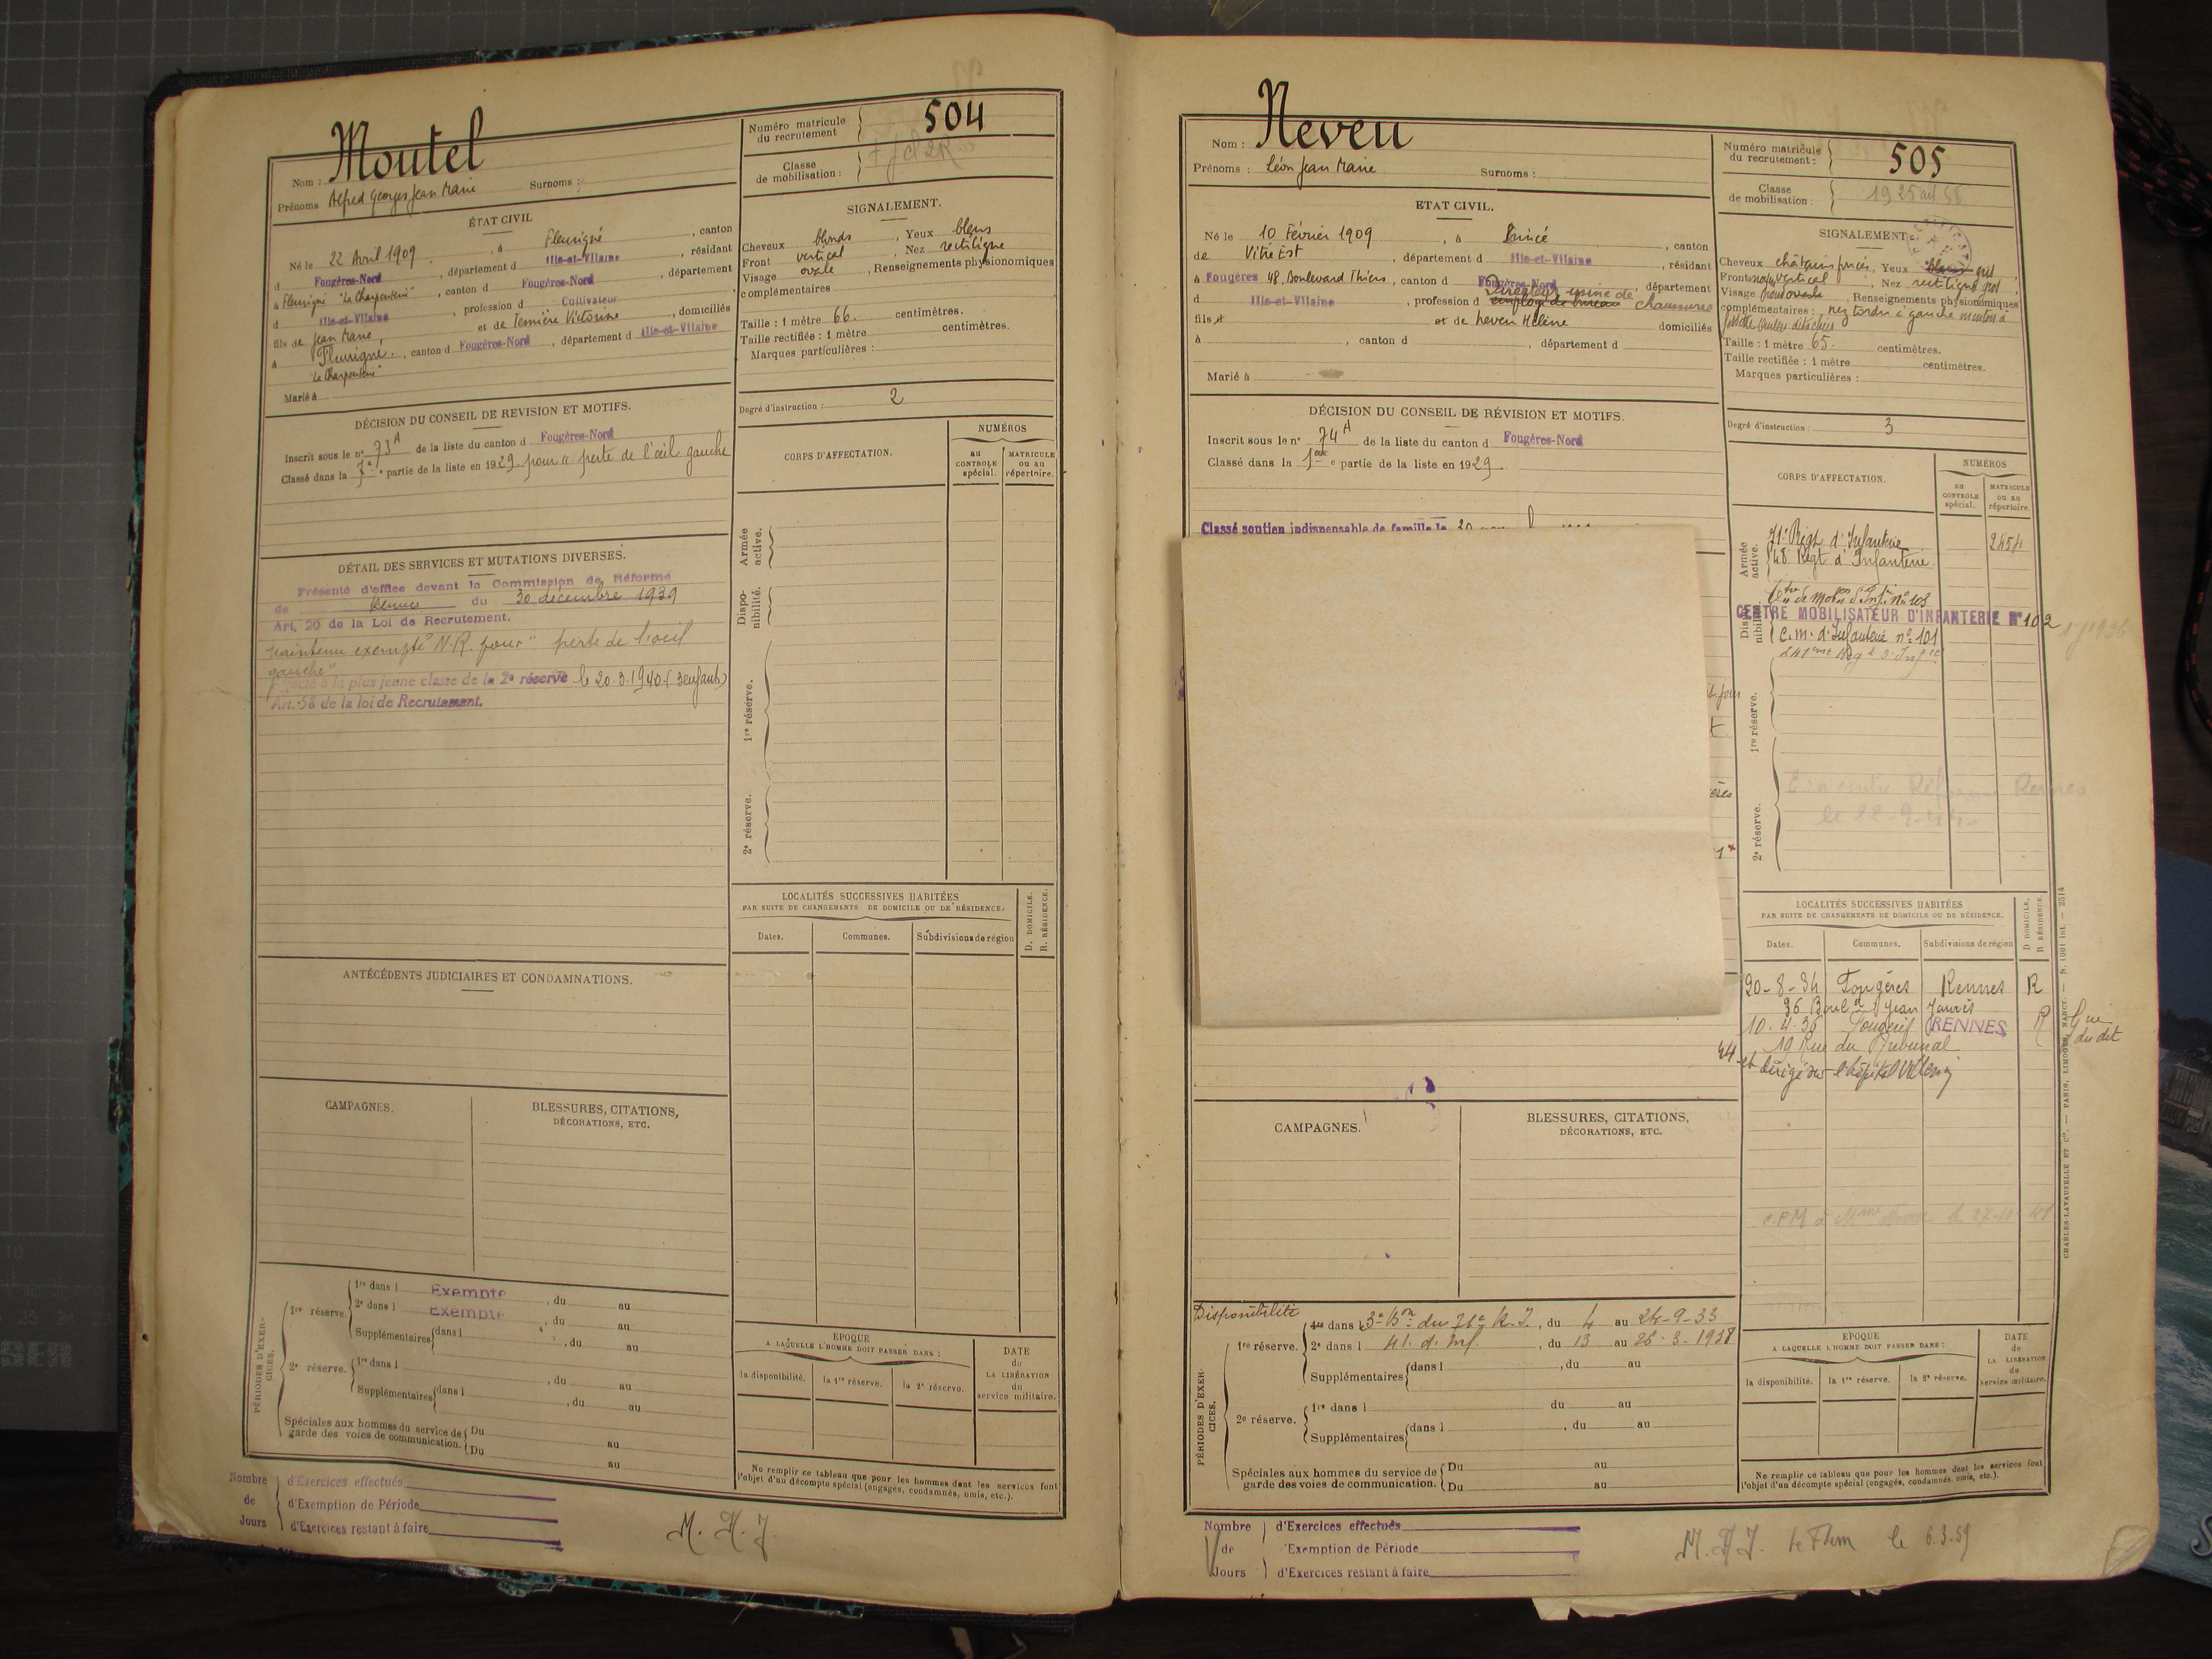 Nom : Moutel
Prénoms Alfred Georges Jean Marie Surnoms :
Numéro matricule du recrutement 504
Classe de mobilisation :
ÉTAT CIVIL
Né le 22 Avril 1909, à Fleurigné, canton
d Fougères-Nord, département d Ille-et-Vilaine, résidant
à Fleurigné "La Charpenterie", canton d Fougères-Nord, département
d Ille-et-Vilaine, profession d Cultivateur
fils de Jean Marie, et de Victorine, domiciliés
à Fleurigné, canton d Fougères-Nord, département d Ille-et-Vilaine
"La Charpenterie"
Marié à
SIGNALEMENT.
Cheveux blonds, Yeux bleus
Front vertical, Nez rectiligne
Visage ovale, Renseignements physionomiques
complémentaires :
Taille : 1 mètre 66. centimètres.
Taille rectifiée : 1 mètre centimètres.
Marques particulières :
Degré d'instruction : 2
DÉCISION DU CONSEIL DE REVISION ET MOTIFS.
Inscrit sous le n° 73 A de la liste du canton d Fougères-Nord
Classé dans la partie de la liste en 1929 pour "perte de l'œil gauche
DÉTAIL DES SERVICES ET MUTATIONS DIVERSES.
Présenté d'office devant la Commission de Réforme
de Rennes du 30 décembre 1939
Art. 20 de la Loi de Recrutement.
Maintenu exempté N.R. pour "perte de l'oeil
gauche"
à la plus jeune classe de la 2e réserve le 20.3.1940 (3 enfants)
Art. 58 de la loi de Recrutement.
CORPS D'AFFECTATION.
NUMÉROS
au CONTROLE spécial.
MATRICULE ou au répertoire.
Armée active.
Dispo-nibilité.
1re réserve.
2e réserve.
ANTÉCÉDENTS JUDICIAIRES ET CONDAMNATIONS.
LOCALITÉS SUCCESSIVES HABITÉES
PAR SUITE DE CHANGEMENTS DE DOMICILE OU DE RÉSIDENCE.
Dates. Communes. Subdivisions de région
D. DOMICILE.
R. RÉSIDENCE.
CAMPAGNES.
BLESSURES, CITATIONS,
DÉCORATIONS, ETC.
PÉRIODES D'EXER-CICES.
1re réserve. 1re dans l Exempté, du au
2e dans l Exempté, du au
Supplémentaires dans l, du au
2e réserve. 1re dans l, du au
Supplémentaires dans l, du au
Spéciales aux hommes du service de garde des voies de communication. Du au
Du au
EPOQUE
A LAQUELLE L'HOMME DOIT PASSER DANS :
la disponibilité. la 1re réserve. la 2e réserve.
DATE de LA LIBÉRATION du service militaire.
Ne remplir ce tableau que pour les hommes dont les services font
l'objet d'un décompte spécial (engagés, condamnés, omis, etc.).
Nombre de Jours
d'Exercices effectués
d'Exemption de Période
d'Exercices restant à faire
Nom : Neveu
Prénoms : Léon Jean Marie Surnoms :
Numéro matricule du recrutement : 505
Classe de mobilisation :
ETAT CIVIL.
Né le 10 Février 1909, à Princé, canton
de Vitré Est, département d Ille-et-Vilaine, résidant
à Fougères 48 Boulevard Thiers, canton d Fougères-Nord, département
d Ille-et-Vilaine, profession d employé de bureau Directeur usine de chaussures
fils d et de Neveu Hélène domiciliés
à, canton d, département d
Marié à
SIGNALEMENT
Cheveux châtains foncés, Yeux gris
Front vertical, Nez rectiligne gros
Visage, Renseignements physionomiques
complémentaires : nez tordu à gauche menton à
Taille : 1 mètre 65. centimètres.
Taille rectifiée : 1 mètre centimètres.
Marques particulières :
Degré d'instruction : 3
DÉCISION DU CONSEIL DE RÉVISION ET MOTIFS.
Inscrit sous le n° 74 A de la liste du canton d Fougères-Nord
Classé dans la 1ère partie de la liste en 1929.
Classé soutien indispensable de famille le 20
CORPS D'AFFECTATION.
NUMÉROS
au CONTROLE spécial.
MATRICULE ou au répertoire.
Armée active.
71e Régt d'Infanterie 2454
48e Régt d'Infanterie
Ctre de Mobon d'Inf. n° 103
CENTRE MOBILISATEUR D'INFANTERIE N° 102
C.m. d'Infanterie n° 101
241eme Regt d'Infie
1re réserve.
2e réserve.
Réforme Rennes
le 22-9-44
LOCALITÉS SUCCESSIVES HABITÉES
PAR SUITE DE CHANGEMENTS DE DOMICILE OU DE RÉSIDENCE.
Dates. Communes. Subdivisions de région
D DOMICILE.
R RÉSIDENCE.
20-8-34 Fougères Rennes R
36 Boulevd Jean Jaurès
10.4.36 Fougères RENNES R
19 Rue du Tribunal
et dirigé sur l'hôpital
CAMPAGNES.
BLESSURES, CITATIONS,
DÉCORATIONS, ETC.
Disponibilité
PÉRIODES D'EXER-CICES.
1re réserve. 1re dans l 3e Bon du 71e R.I., du 4 au 24-9-33
2e dans l 41. d. Inf., du 13 au 26-3-1938
Supplémentaires dans l, du au
2e réserve. 1re dans l du au
Supplémentaires dans l, du au
Spéciales aux hommes du service de garde des voies de communication. Du au
Du au
EPOQUE
A LAQUELLE L'HOMME DOIT PASSER DANS :
la disponibilité. la 1re réserve. la 2e réserve.
DATE de LA LIBÉRATION du service militaire.
Ne remplir ce tableau que pour les hommes dont les services font
l'objet d'un décompte spécial (engagés, condamnés, omis, etc.).
Nombre de Jours
d'Exercices effectués
d'Exemption de Période
d'Exercices restant à faire
le 6.3.59
CHARLES-LAVAUZELLE ET Cie. — PARIS, LIMOGES, NANCY.